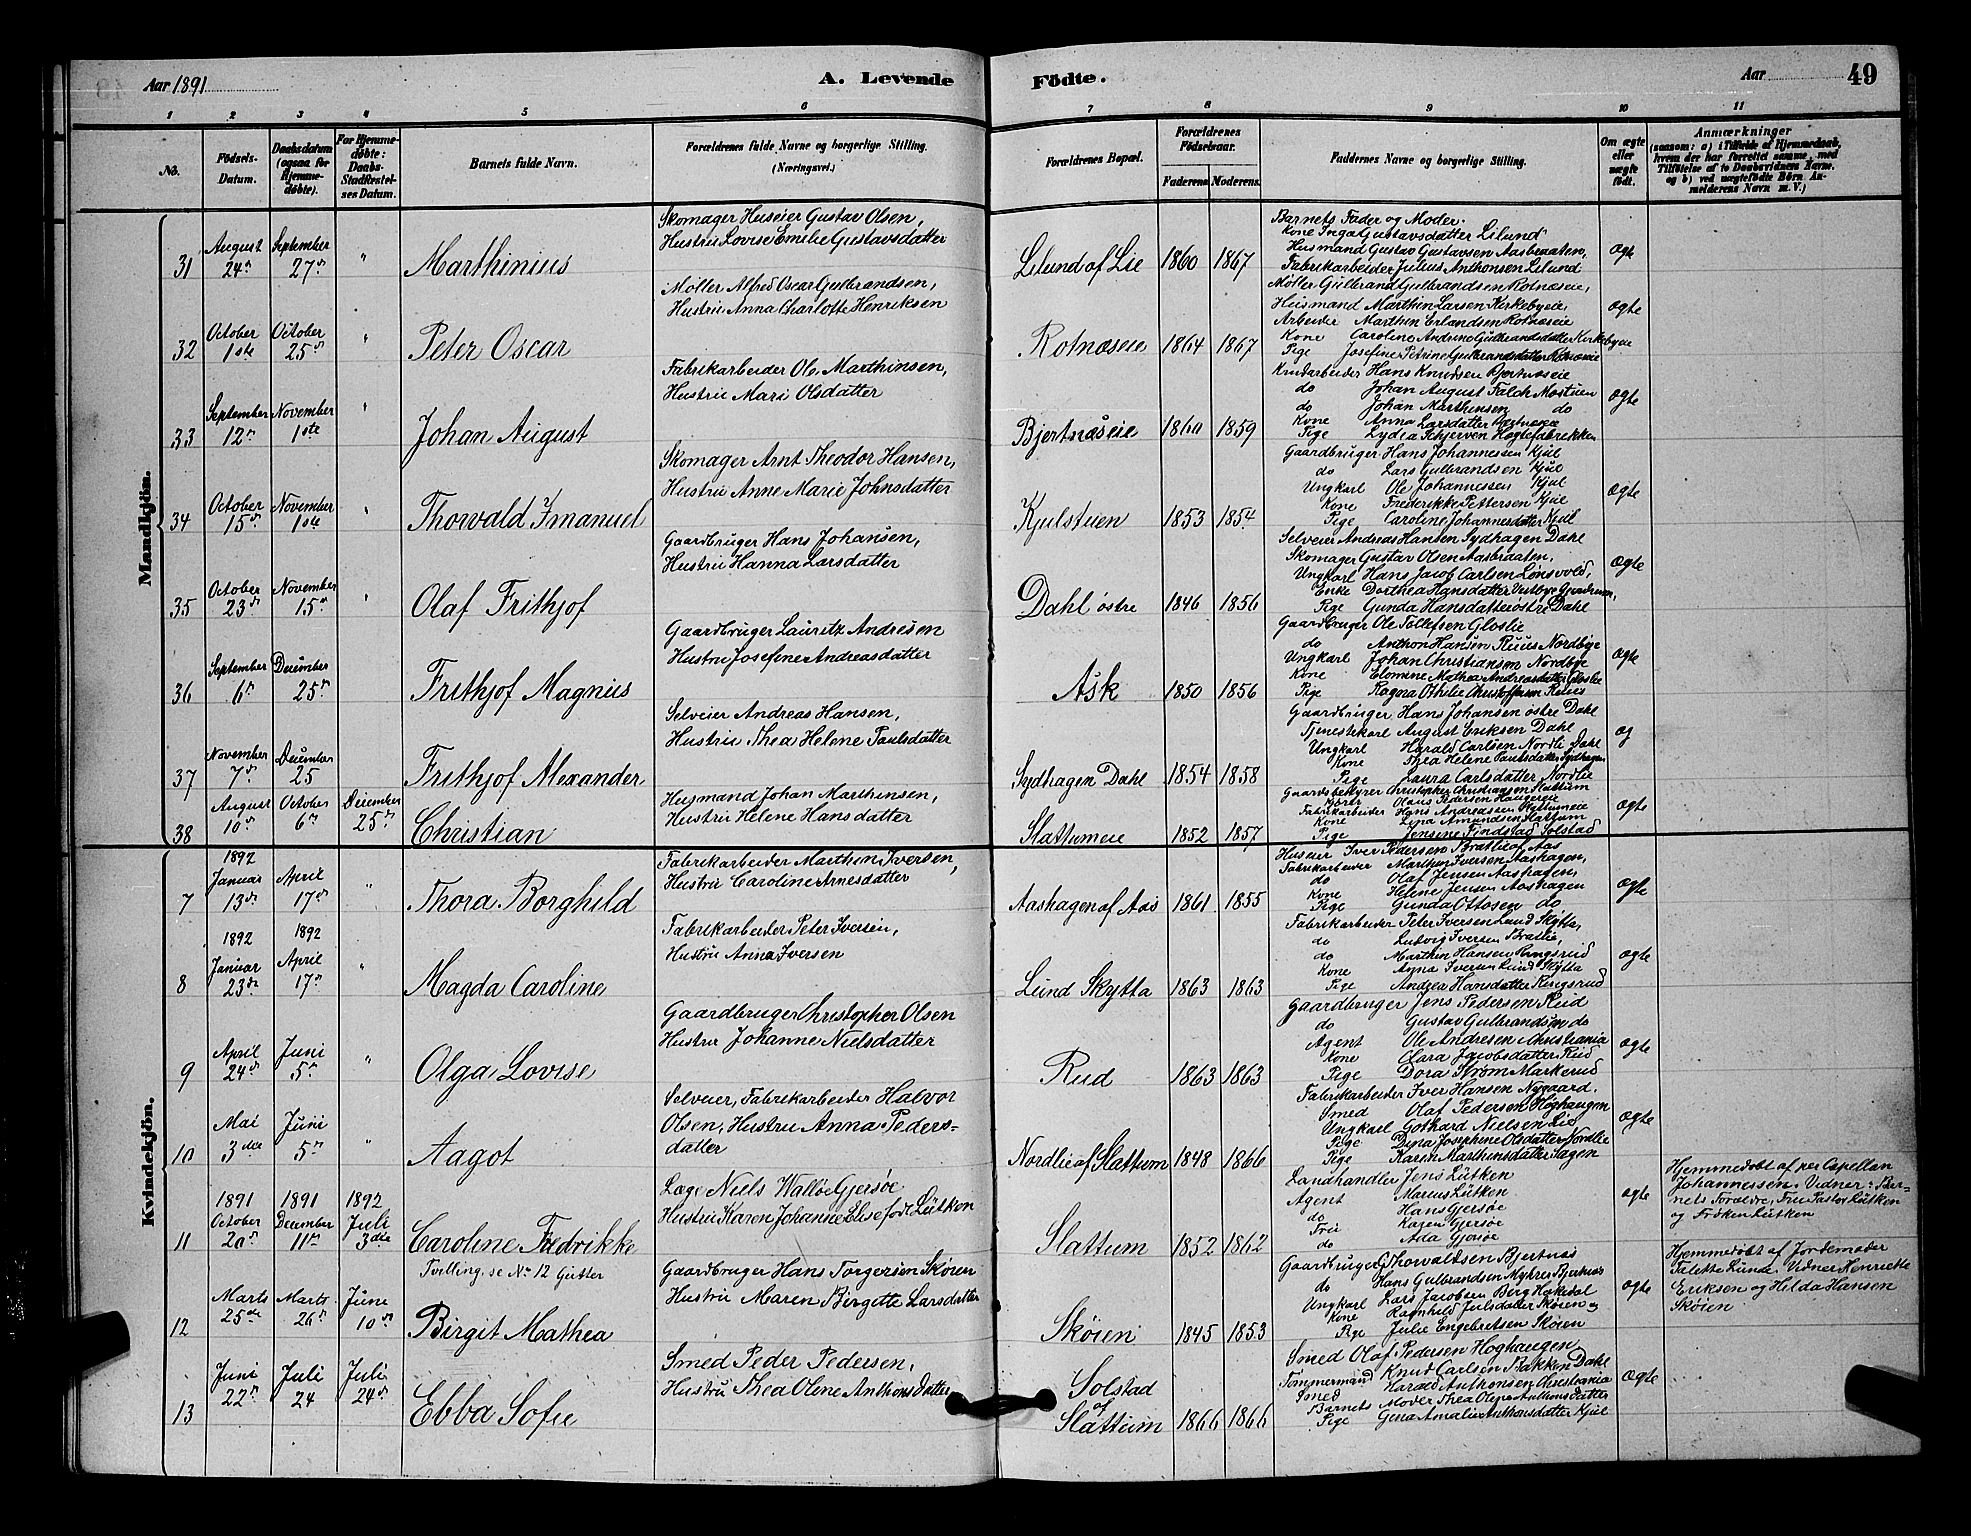 Aar 1891
A. Levende Födte.
Aar
49
1 2 3 4 5 6 7 8 9 10 11
No.
Födsels-Datum.
Daabsdatum (ogsaa for Hjemme-döbte).
For Hjemme-döbte: Daabs-Stadfæstel-ses Datum.
Barnets fulde Navn.
Forældrenes fulde Navne og borgerlige Stilling. (Næringsvei.)
Forældrenes Bopæl.
Forældrenes Födselsaar.
Faderens Moderens.
Faddernes Navne og borgerlige Stilling.
Om ægte eller uægte födt.
Anmærkninger
(saasom: a) i Tilfælde af Hjemmedaab, hvem der har forrettet samme, med Tilföielse af to Daabsvidners Navne, og b) ved uægtefödte Börn Anmelderens Navn m. V.)
Mandkjön.
31 August 24de September 27de " Marthinius
Skomager Huseier Gustav Olsen,
Hustru Lovise Emilie Gustavsdatter
Lilund af Lie 1860 1867
Barnets Fader og Moder.
Kone Inga Gustavsdatter Lilund
Husmand Gustav Gustavsen Aasbraaten,
Fabrikarbeider Julius Anthonsen Lilund
ægte
32 October 1ste October 25de " Peter Oscar
Møller Alfred Oscar Gulbrandsen,
Hustru Anna Charlotte Henriksen
Rotnæseie 1864 1867
Møller Gulbrand Gulbrandsen Rotnæseie,
Husmand Marthin Larsen Kirkebyeie,
Arbeider Marthin Erlandsen Rotnæseie
Kone Caroline Andrine Gudbrandsdatter Kirkebyeie
Pige Josefine Petrine Gulbrandsdatter Rotnæseie
ægte
33 September 12te November 1ste " Johan August
Fabrikarbeider Ole Marthinsen,
Hustru Mari Olsdatter
Bjertnæseie 1860 1859
Krudarbeider Hans Knudsen Bjertnæseie
do Johan August Falch Mostuen
do Johan Marthinsen do
Kone Anna Larsdatter
Pige Lydia Schjerven
ægte
34 October 15de November 1ste " Thorvald Imanuel
Skomager Arnt Theodor Hansen,
Hustru Anne Marie Johnsdatter
Kjulstuen 1853 1854
Gaardbruger Hans Johannessen Kjul
do Lars Gulbrandsen Kjul
Ungkarl Ole Johannessen Kjul
Kone Frederikke Pettersen Kjul
Pige Caroline Johannesdatter Kjul
ægte
35 October 23de November 15de " Olaf Frithjof
Gaardbruger Hans Johansen,
Hustru Hanna Larsdatter
Dahl østre 1846 1856
Selveier Andreas Hansen Sydhagen Dahl
Skomager Gustav Olsen Aasbraaten,
Ungkarl Hans Jacob Carlsen Lønsvold,
Enke Dorthea Hansdatter Vestbye Gjendrum,
Pige Gunda Hansdatter østre Dahl
ægte
36 September 6te December 25de Frithjof Magnus
Gaardbruger Lauritz Andresen
Hustru Josefine Andreasdatter
Ask 1850 1856
Gaardbruger Ole Tollefsen Gloslie
do Anthon Hansen Ruus Nordbye
Ungkarl Johan Christiansen Nordbye
Kone Elomine Mathea Andreasdatter Gloslie
Pige Ragna Othilie Christoffersen Ruus
ægte
37 November 7de December 25 Frithjof Alexander
Selveier Andreas Hansen,
Hustru Thea Helene Paulsdatter
Sydhagen Dahl 1854 1858
Gaardbruger Hans Johansen østre Dahl
Tjenestekarl August Eriksen Dahl
Ungkarl Harald Carlsen Nordli Dahl
Kone Thea Helene Paulsdatter Sydhagen
Pige Laura Carlsdatter Nordlie
æg
38 August 10de October 6te December 25de Christian
Husmand Johan Marthinsen,
Hustru Helene Hansdatter
Slattumeie 1852 1857
Gaardsbestyrer Christopher Christiansen Slattum
Olaus Pedersen Haugereie
Fabrikarbeider Hans Andreasen Slattumeie
Kone Lina Amundsen Slattum
Pige Jensine Findstad Solstad
ægte
Kvindekjön.
7 1892 Januar 13de April 17de " Thora Borghild
Fabrikarbeider Marthin Iversen,
Hustru Caroline Arnesdatter
Aashagen af Aas 1861 1855
Huseier Iver Pedersen Bratlie af Aas
Fabrikarbeider Marthin Iversen Aashagen,
do Olaf Jensen Aashagen,
Kone Helene Jensen Aashagen
Pige Gunda Ottosen do
ægte
8 1892 Januar 23de 1892 April 17de " Magda Caroline
Fabrikarbeider Peter Iversen,
Hustru Anna Iversen
Lund Skytta 1863 1863
Fabrikarbeider Peter Iversen Lund Skytta,
do Ludvig Iversen Bratlie,
do Marthin Hansen Ringsrud
Kone Anna Iversen Lund Skytta
Pige Andrea Hansdatter Ringsrud
ægte
9 April 24de Juni 5te " Olga Lovise
Gaardbruger Christopher Olsen
Hustru Johanne Nielsdatter
Rud 1863 1863
Gaardbruger Jens Pedersen Rud
do Gustav Gulbrandsen do
Agent Ole Andresen Christiania
Kone Clara Jacobsdatter Rud
Pige Dora Strøm Markerud
ægte
10 Mai 3die Juni 5te " Aagot
Selveier, Fabrikarbeider Halvor
Olsen, Hustru Anna Peders-
datter
Nordlie af Slattum 1848 1866
Fabrikarbeider Iver Hansen Nygaard.
Smed Olaf Pedersen Høghaugen
Ungkarl Gothard Nielsen Lie
Pige Dina Josephine Olsdatter Nordlie
Pige Karen Marthinsdatter Hagen
ægte
11 1891 October 20de 1891 December 11te 1892 Juli 3die Caroline Fredrikke
Læge Niels Walløe Gjersøe
Hustru Karen Johanne Elise født Lütken
Slattum 1852 1862
Landhandler Jens Lütken
Agent Marius Lütken
do Hans Gjersøe
Fru Karen Gjersøe
do Ada Gjersøe
ægte
Hjemmedøbt af per Capellan
Johannessen. Vidner: Bar-
nets Forældre, Fru Pastor Lütken
og Frøken Lütken
12 Marts 25de Marts 26de June 10de
Tvilling, se No 12 Gutter
Birgit Mathea
Gaardbruger Hans Torgersen Skøien
Hustru Maren Birgitte Larsdatter
Skøien 1845 1853
Gaardbruger G Thorvaldsen Bjertnæs
do Hans Gulbrandsen Myhrer Bjertnæs
Ungkarl Lars Jacobsen Berg Hakedal
Kone Ragnhild Julsdatter Skøien og
Pige Julie Engebretsen Skøien
ægte
Hjemmedøbt af Jordemoder
Falette Lunde. Vidner Henriette
Eriksen og Hilda Hansen
Skøien
13 Juni 22de Juli 24 Juli 24de Ebba Sofie
Smed Peder Pedersen,
Hustru Thea Olene Anthonsdatter
Solstad af Slattum 1866 1866
Smed Olaf Pedersen Høghaugen
Tømmermand Knud Carlsen Bakken Dahl
Smed Harald Anthonsen Christiania
Barnets Moder Thea Olena Anthonsdatter
Pige Gina Amalie Anthonsdatter Kjul
ægte